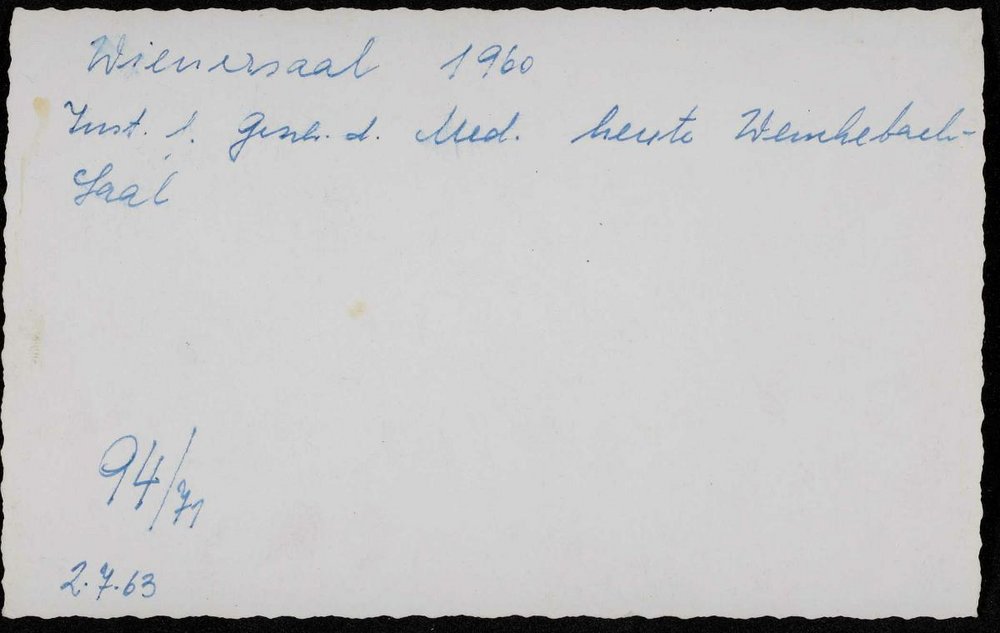 Wienersaal 1960
Inst. f. Gesch. d. Med. heute Wenckebach-
Saal
94/71
2.7.63